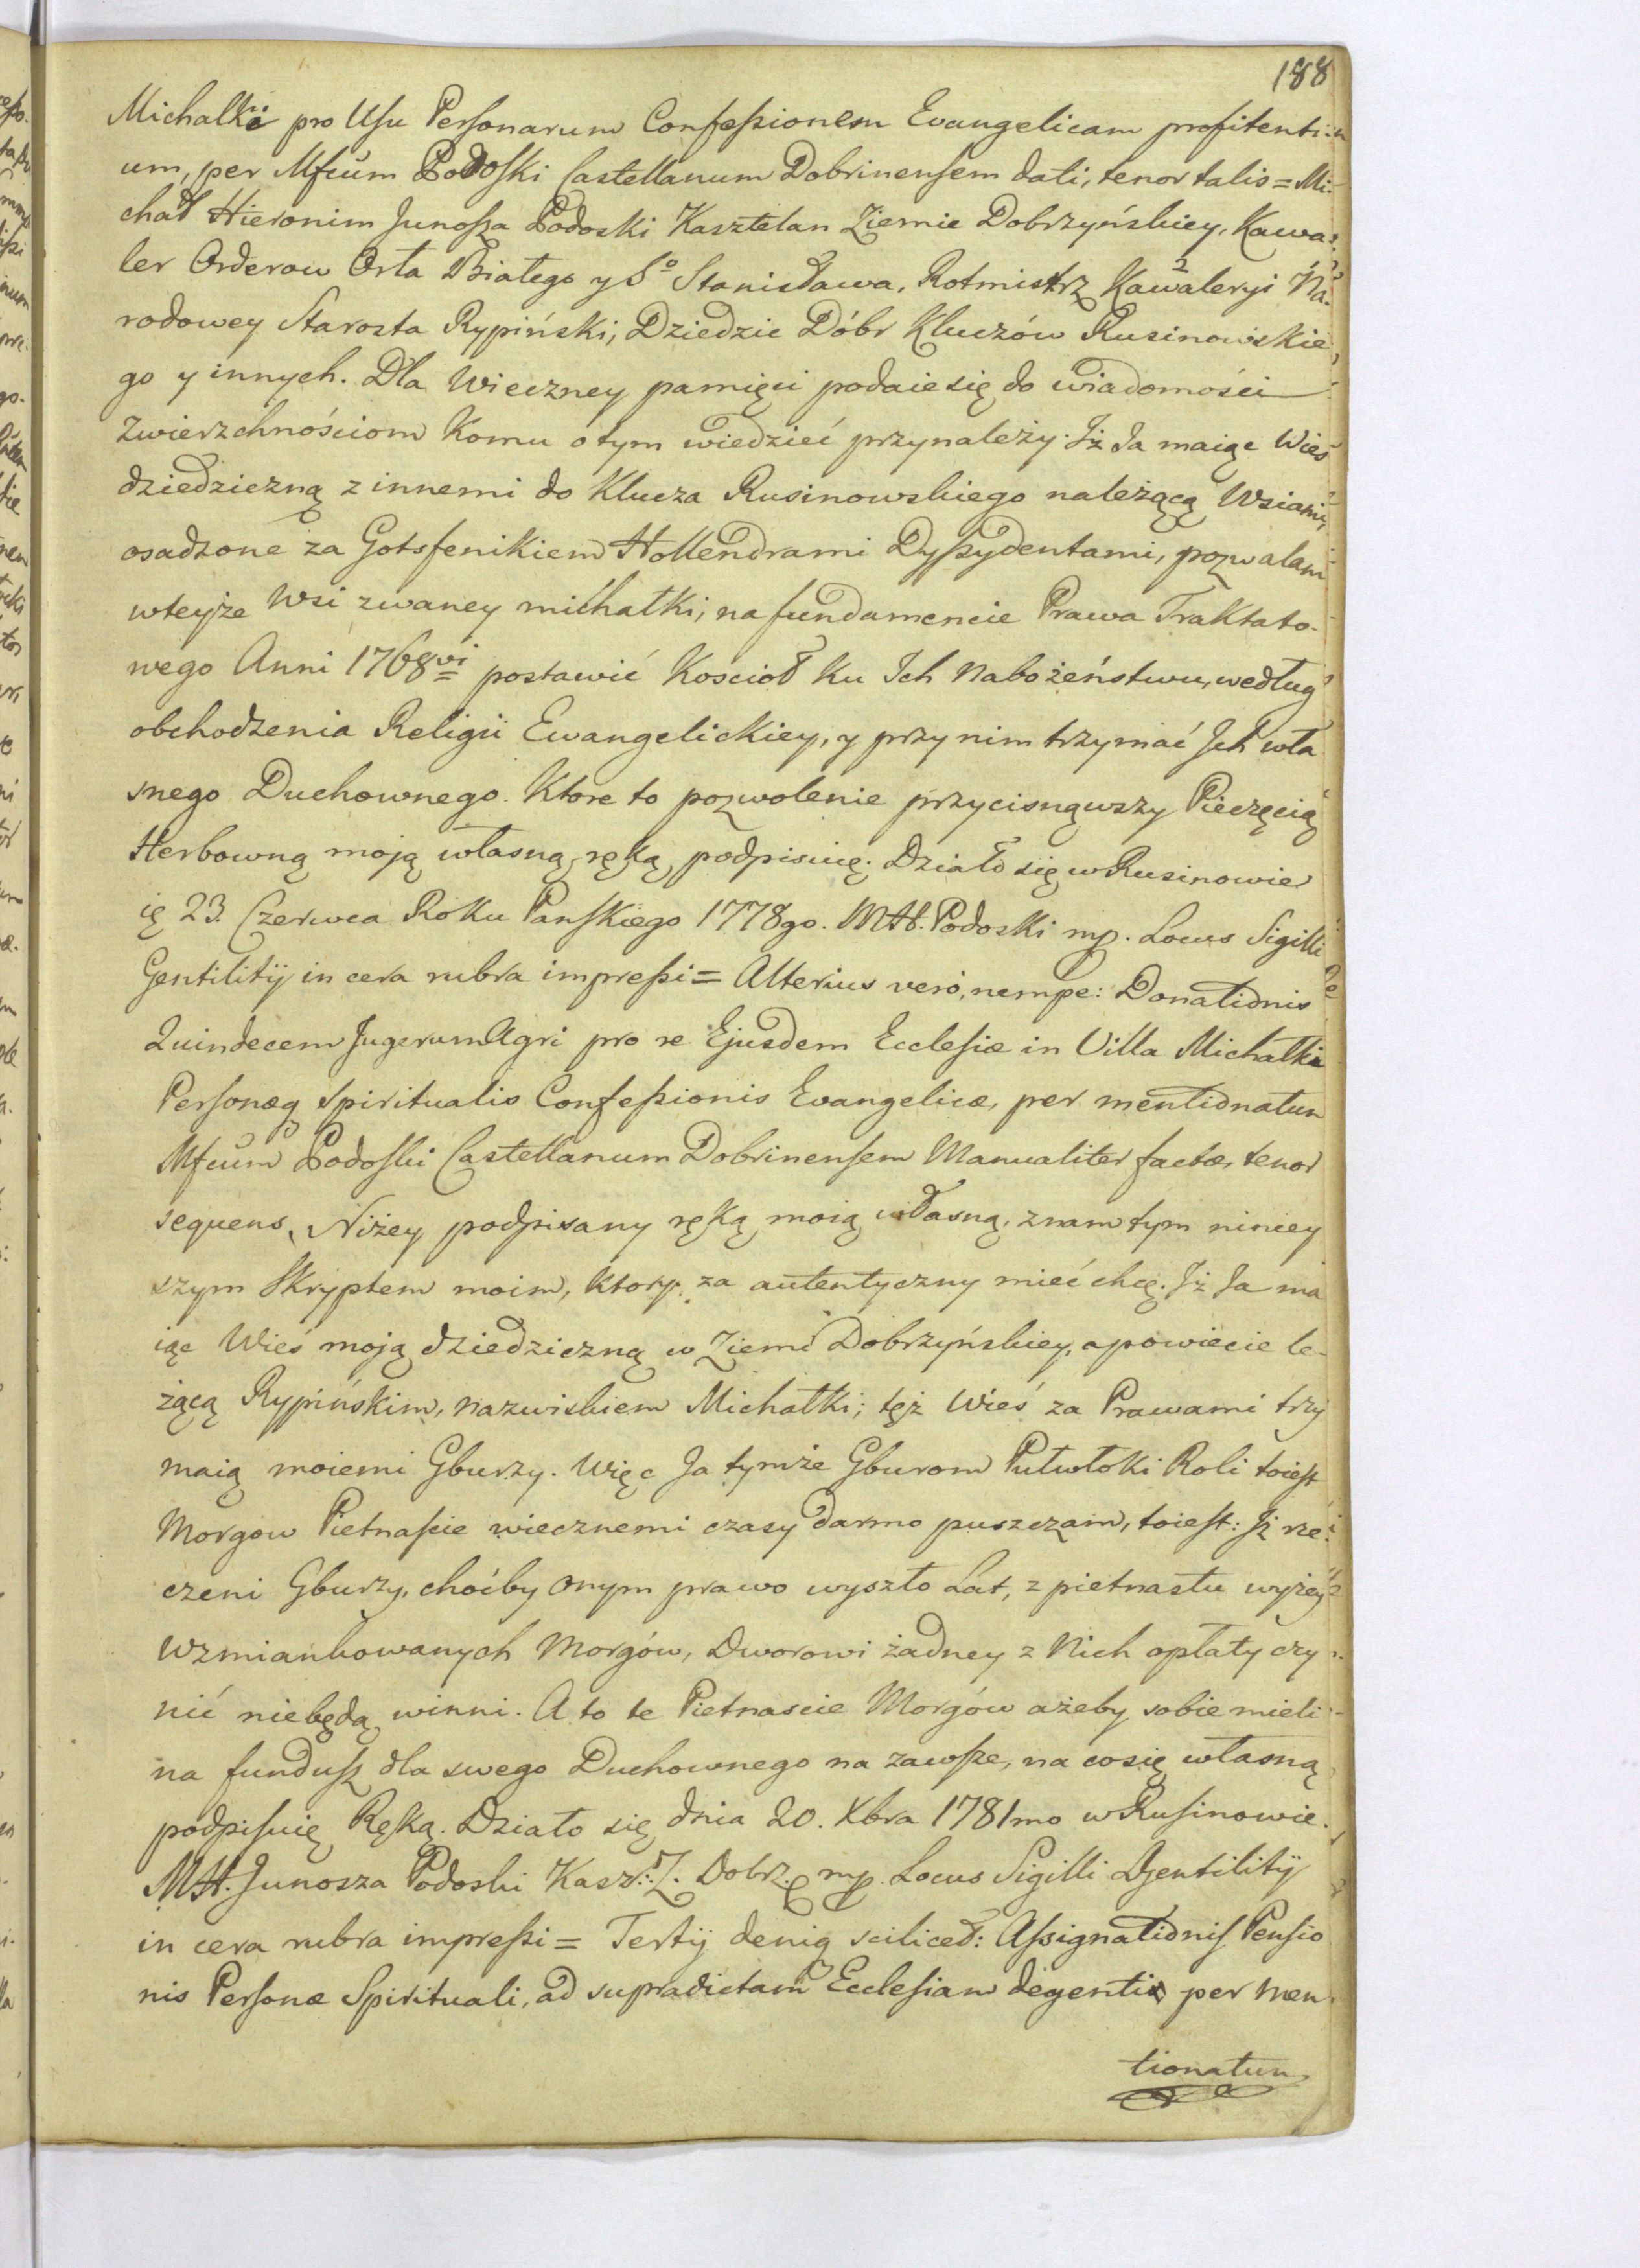 188
Michalki pro Usu Personarum Confessionem Evangelicam profitenti-
um, per Mfcum Podoski Castellanum Dobrinensem dati, tenor talis = Mi-
chał Hieronim Junosza Podoski Kasztelan Ziemie Dobrzyńskiey, Kawa-
ler Orderow Orła Białego y S° Stanisława, Rotmistrz Kawaleryi Na-
rodowey Starosta Rypiński, Dziedzic Dóbr Kluczów Rusinowskie
go y innych. Dla Wieczney pamięci podaie się do wiadomości
Zwierzchnościom komu o tym wiedzieć przynależy. Iż Ja maiąc Wieś
dziedziczną z innemi do Klucza Rusinowskiego należącą Wsiami,
osadzone za Gotsfenikiem Hollendrami Dyssydentami, pozwalam
wteyże Wsi zwaney michałki, na fundamencie Prawa Traktato-
wego Anni 1768vi postawić Kościoł ku Ich Nabożeństwu, według
obchodzenia Religii Ewangelickiey, y przy nim trzymać Ich wła
snego Duchownego. Ktore to pozwolenie przycisnąwszy Pieczęcią
Herbowną moją własną ręką podpisuię. Działo się w Rusinowie
ię 23. Czerwca Roku Panskiego 1778go. MH. Podoski mp. Locus Sigilli
Gentilitij in cera rubra impressi = Alterius vero, nempe: Donationis
Quindecem Jugerum Agri pro re Ejusdem Ecclesiæ in Villa Michałki
Personæq Spiritualis Confessionis Evangelicæ, per mentionatum
Mfcum Podoski Castellanum Dobrinensem Manualiter factæ, tenor
sequens, Niżey podpisany ręką moią własną, znam tym niniey
szym Skryptem moim, ktory za autentyczny mieć chcę. Iż Ja ma
iąc Wieś moją dziedziczną w Ziemi Dobrzyńskiey, a powiecie le-
żącą Rypińskim, nazwiskiem Michałki; tęż Wieś za Prawami trzy
maią moiemi Gburzy. Więc Ja tymże Gburom Pułwłoki Roli toiest
Morgow Pietnaście wiecznemi czasy darmo puszczam, toiest: Iż rze-
czeni Gburzy, choćby Onym prawo wyszło Lat, z pietnastu wyżey
Wzmiankowanych Morgów, Dworowi żadney z Nich opłaty czy-
nić niebędą winni. A to te Pietnaście Morgów ażeby sobie mieli
na fundusz dla swego Duchownego na zawsze, na co się własną
podpisuię Ręką. Działo się dnia 20. Xbra 1781mo w Rusinowie.
MH. Junosza Podoski Kasz: Z. Dobrz. mp. Locus Sigilli Gentilitij
in cera rubra impressi = Tertij deniq scilicet: Assignationis Pensio
nis Personæ Spirituali, ad supradictam Ecclesiam degenti per men
tionatum